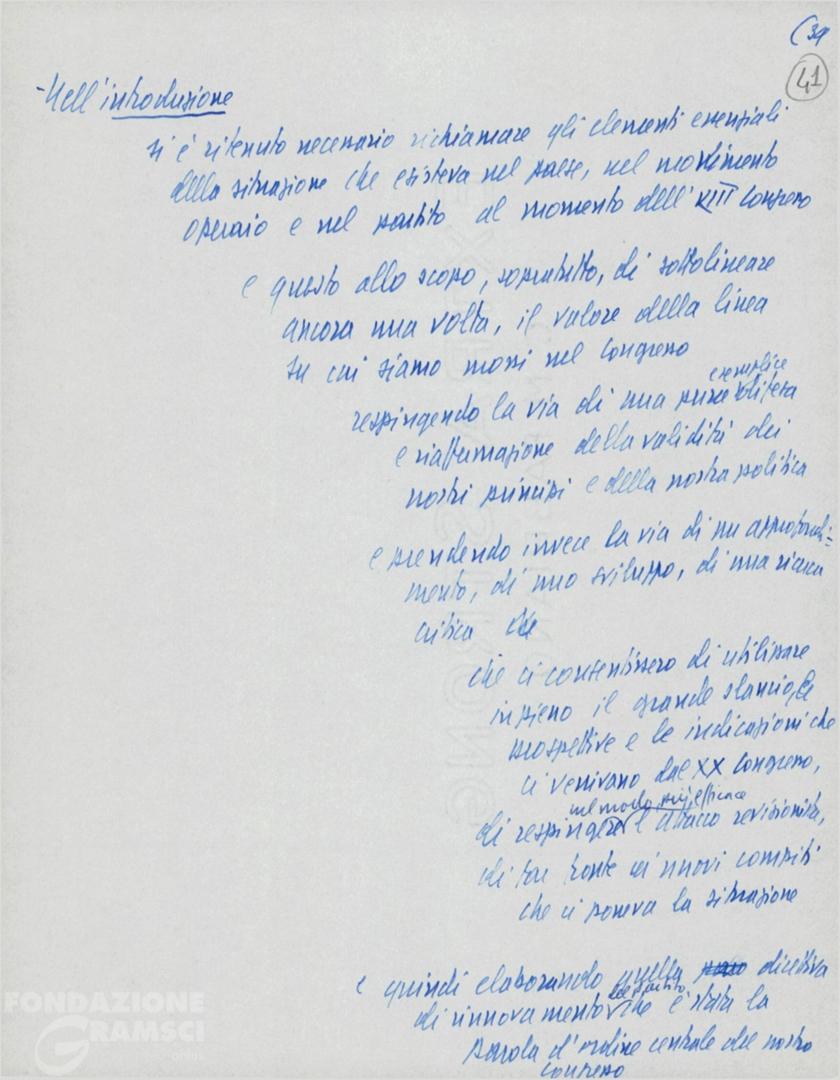 (39
41
-Nell'introduzione
si è ritenuto necessario richiamare gli elementi essenziali
della situazione che esisteva nel paese, nel movimento
operaio e nel partito al momento dell'VIII Congresso
e questo allo scopo, sopratutto, di sottolineare
ancora una volta, il valore della linea
su cui siamo mossi nel Congresso
e semplice
respingendo la via di una pura difesa
e riaffermazione della validità dei
nostri principi e della nostra politica
e prendendo invece la via di un approfondi=
mento, di uno sviluppo, di una ricerca
critica
che ci consentissero di utilizzare
in pieno il grande slancio, le
prospettive e le indicazioni che
ci venivano dal XX Congresso,
nel modo più efficace
di respingere l'attacco revisionista,
di far fronte ai nuovi compiti
che ci poneva la situazione
e quindi elaborando quella direttiva
del partito
di rinnovamento che è stata la
parola d'ordine centrale del nostro
congresso
FONDAZIONE
GRAMSCI
onlus